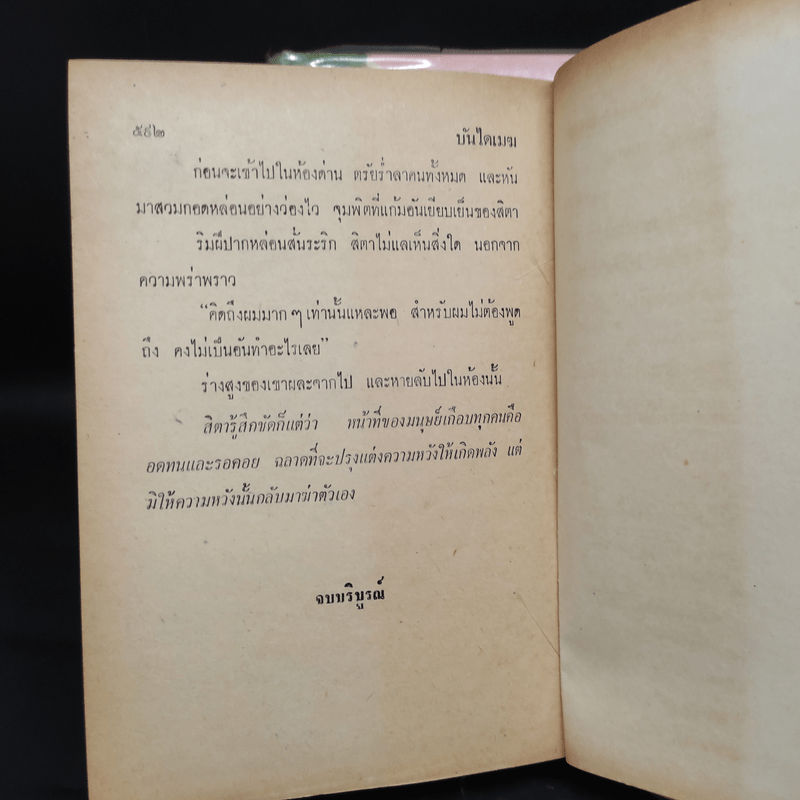 ๕๙๒
บันไดเมฆ
ก่อนจะเข้าไปในห้องด่าน ตรัยร่ำลาคนทั้งหมด และหัน
มาสวมกอดหล่อนอย่างว่องไว จุมพิตที่แก้มอันเยียบเย็นของสิตา
ริมฝีปากหล่อนสั่นระริก สิตาไม่แลเห็นสิ่งใด นอกจาก
ความพร่าพราว
“คิดถึงผมมาก ๆ เท่านั้นแหละพอ สำหรับผมไม่ต้องพูด
ถึง คงไม่เป็นอันทำอะไรเลย”
ร่างสูงของเขาผละจากไป และหายลับไปในห้องนั้น
สิตารู้สึกชัดก็แต่ว่า หน้าที่ของมนุษย์เกือบทุกคนคือ
อดทนและรอคอย ฉลาดที่จะปรุงแต่งความหวังให้เกิดพลัง แต่
มิให้ความหวังนั้นกลับมาฆ่าตัวเอง
จบบริบูรณ์